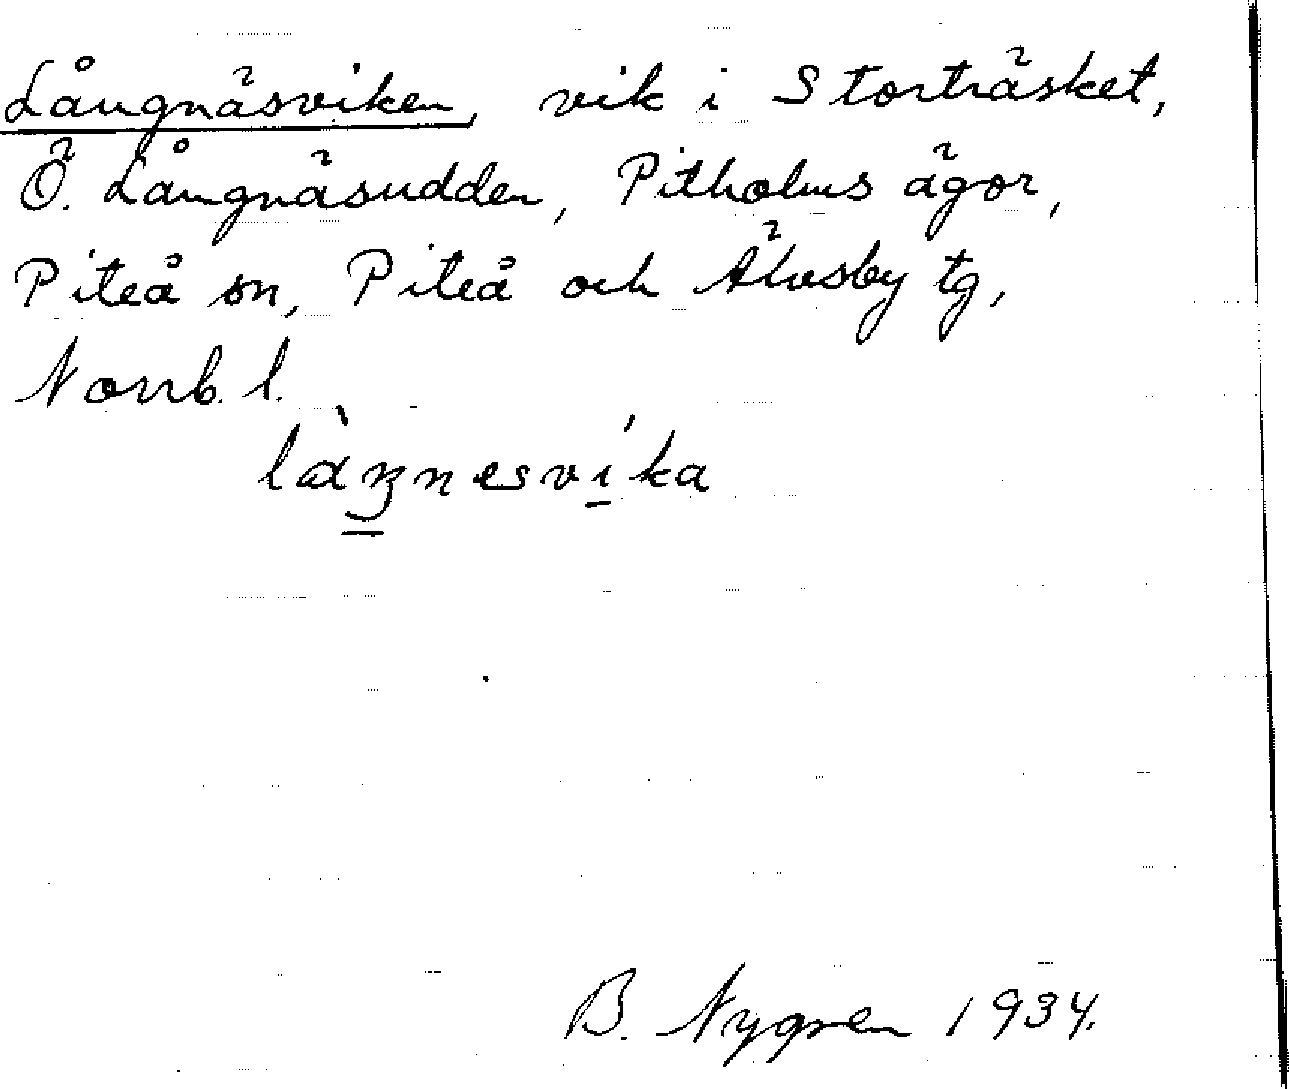 Långnäsviken, vik i Storträsket,
Ö. Långnäsudden, Pitholms ägor,
Piteå sn, Piteå och Älvsby tg,
Norrb. l.
làŋnesvíka
B. Nygren 1934.